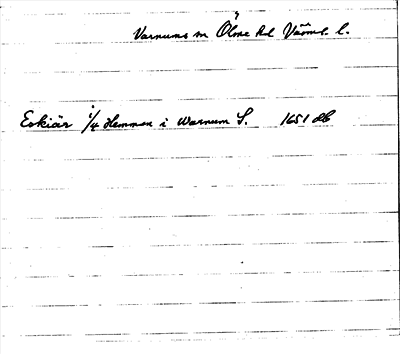 Varnums sn Ölme hd Värml. l.
Eskiär 1/4 Hemman i Warnum S. 1651 db